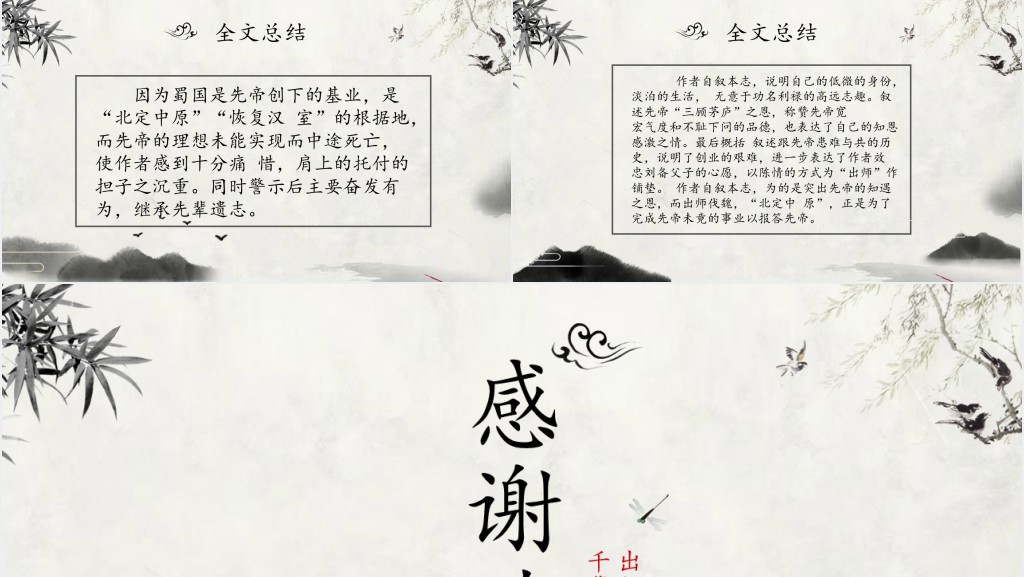 全文总结
因为蜀国是先帝创下的基业，是
“北定中原”“恢复汉 室”的根据地，
而先帝的理想未能实现而中途死亡，
使作者感到十分痛 惜，肩上的托付的
担子之沉重。同时警示后主要奋发有
为，继承先辈遗志。
全文总结
作者自叙本志，说明自己的低微的身份，
淡泊的生活， 无意于功名利禄的高远志趣。叙
述先帝“三顾茅庐”之恩，称赞先帝宽
宏气度和不耻下问的品德，也表达了自己的知恩
感激之情。最后概括 叙述跟先帝患难与共的历
史，说明了创业的艰难，进一步表达了作者效
忠刘备父子的心愿，以陈情的方式为“出师”作
铺垫。 作者自叙本志，为的是突出先帝的知遇
之恩，而出师伐魏，“北定中 原”，正是为了
完成先帝未竟的事业以报答先帝。
感谢
出
千